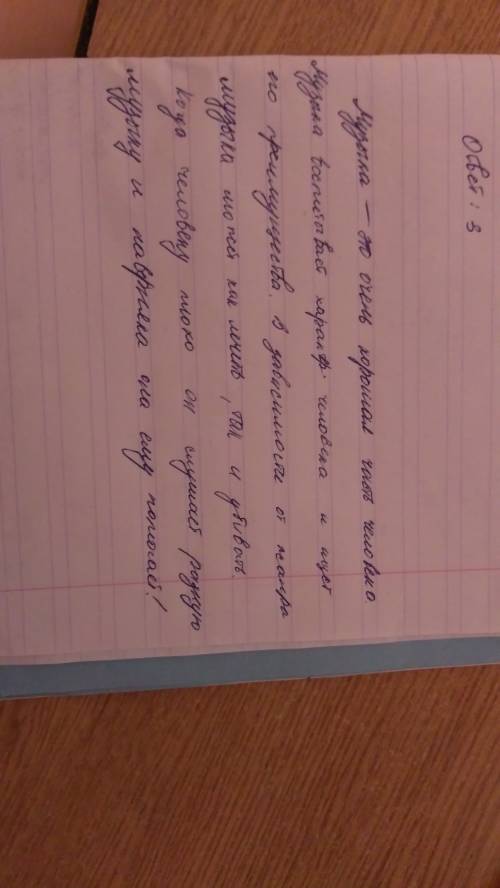 Ответ: 3
Музыка – это очень хорошая часть человека
Музыка воспитывает характ. человека и ищет
его преимущества. В зависимости от жанра
музыка может как лечить, так и убивать.
Когда человеку плохо он слушает разную
музыку и наверняка она ему помогает!